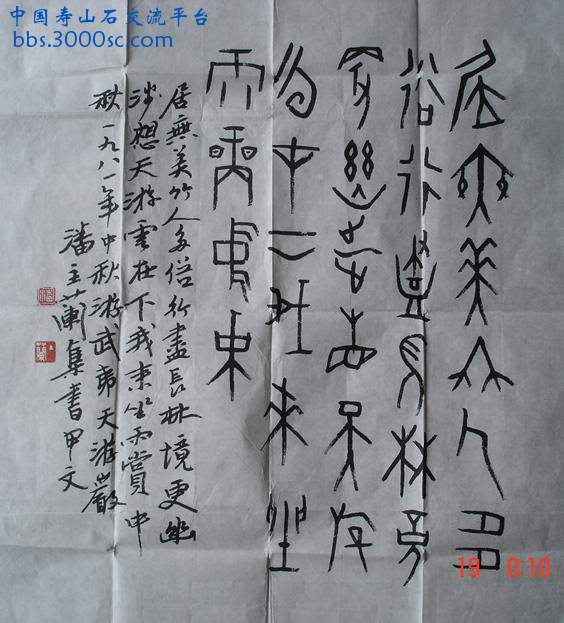 中国寿山石交流平台
bbs.3000sc.com
居無美竹人多
俗行盡長林境
更幽涉想天游
雲在下我來坐
雨賞中秋
居無美竹人多俗行盡長林境更幽
涉想天游雲在下我來坐雨賞中
秋一九八一年中秋游武夷天游巖
潘主蘭集書甲文
19 0:10